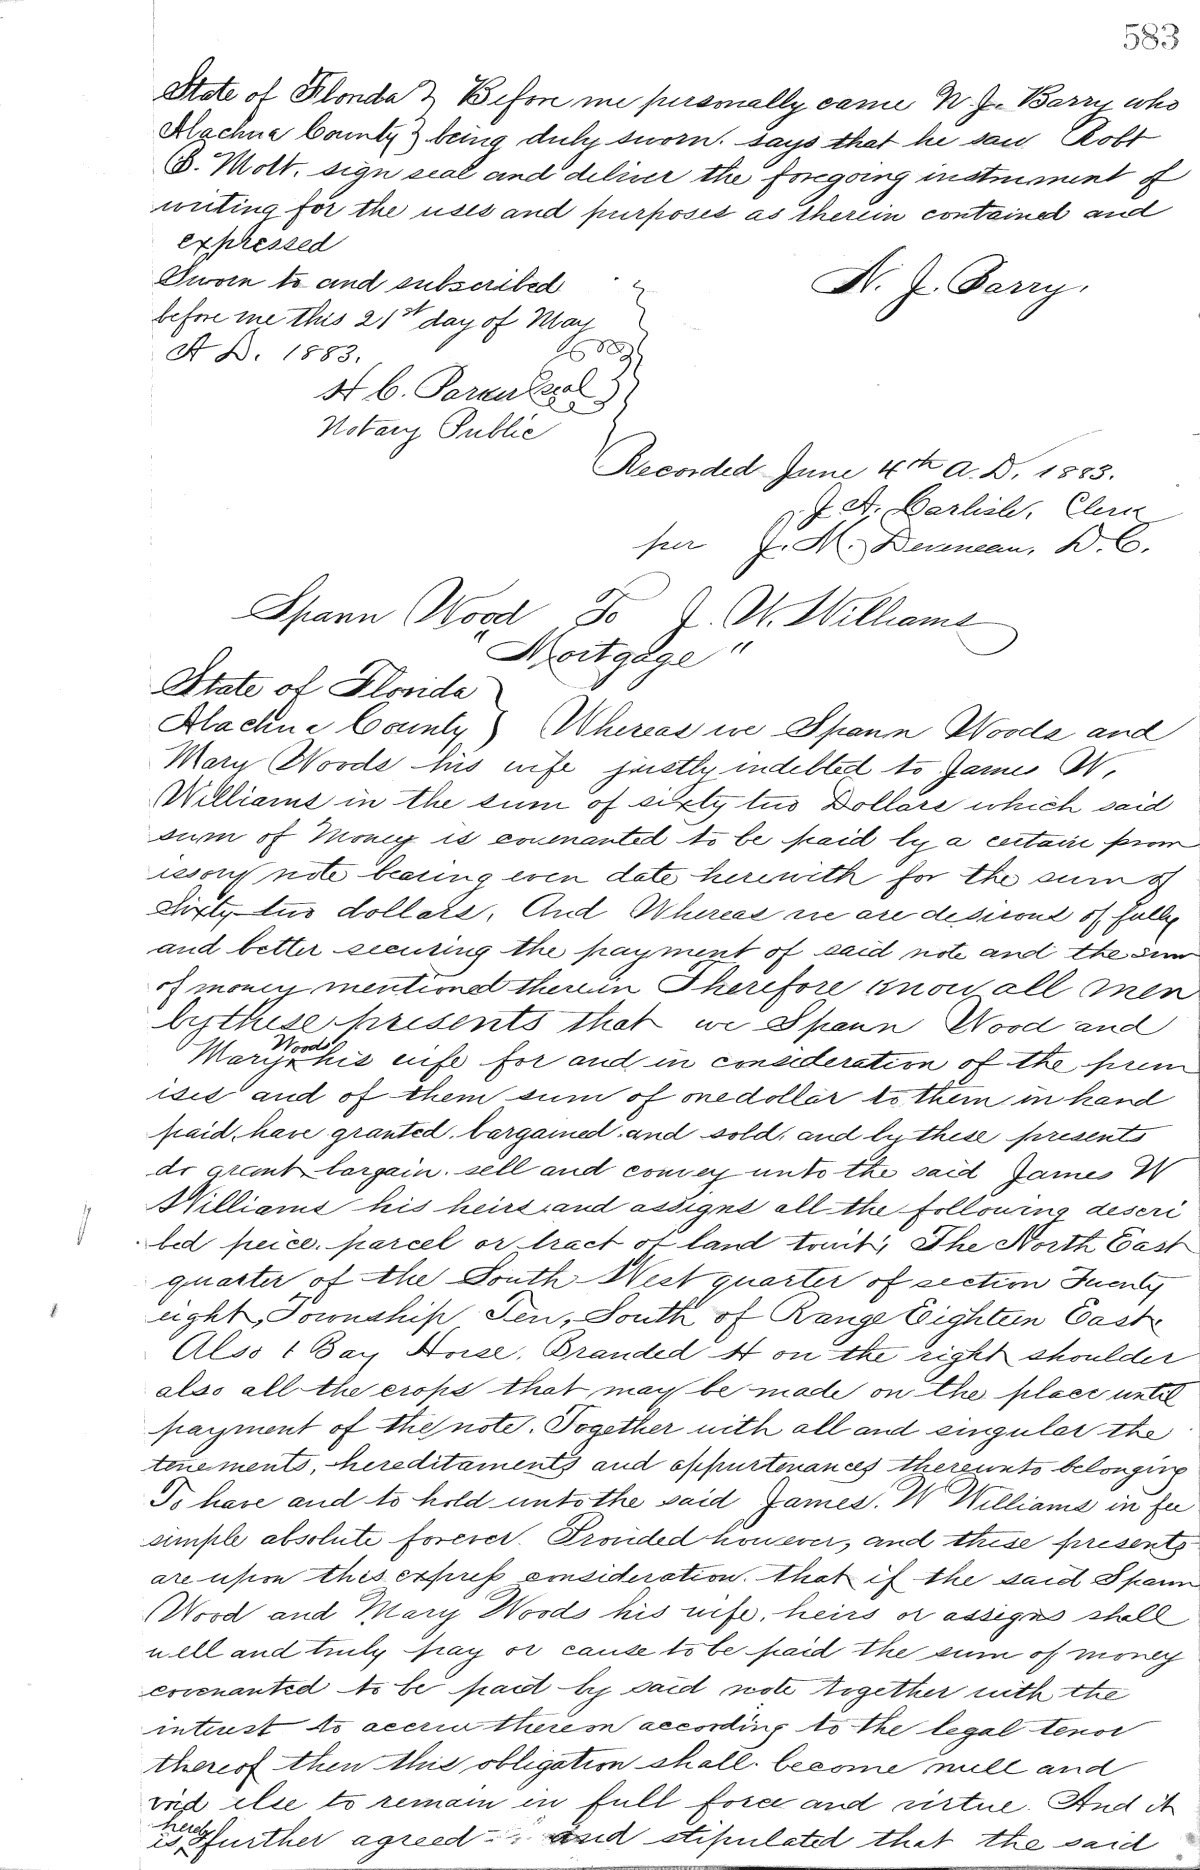 583
State of Florida } Before me personally came N. J. Barry who
Alachua County } being duly sworn. says that he saw Robt
S. Mott. sign seal and deliver the foregoing instrument of
writing for the uses and purposes as therein contained and
expressed
Sworn to and subscribed
N. J. Barry.
before me this 21st day of May
A D. 1883.
H C. Parker seal
Notary Public
Recorded June 4th A.D. 1883.
J. A. Carlisle, Clerk
per J. M. Deveneau, D.C.
Spann Wood To J. W. Williams
"Mortgage"
State of Florida }
Alachua County } Whereas we Spann Woods and
Mary Woods his wife justly indebted to James W.
Williams in the sum of sixty two Dollars which said
sum of Money is covenanted to be paid by a certain prom
issory note bearing even date herewith for the sum of
Sixty two dollars. And Whereas we are desirous of fully
and better securing the payment of said note and the sum
of money mentioned therein Therefore know all men
by these presents that we Spann Wood and
Mary Woods his wife for and in consideration of the prem
ises and of them sum of one dollar to them in hand
paid, have granted. bargained. and sold. and by these presents
do grant bargain. sell and convey unto the said James W
Williams his heirs and assigns all the following descri
bed peice. parcel or tract of land towit; The North East
quarter of the South West quarter of section Twenty
eight, Township Ten, South of Range Eighteen East.
Also 1 Bay Horse. Branded H on the right shoulder
also all the crops that may be made on the place until
payment of the note. Together with all and singular the
tenements, hereditaments and appurtenances thereunto belonging
To have and to hold unto the said James. W Williams in fee
simple absolute forever. Provided however, and these presents
are upon this express consideration. that if the said Spann
Wood and Mary Woods his wife, heirs or assigns shall
well and truly pay or cause to be paid the sum of money
covenanted to be paid by said note together with the
interest to accrue thereon according to the legal tenor
thereof then this obligation shall become null and
void else to remain in full force and virtue. And it
is hereby further agreed - and stipulated that the said